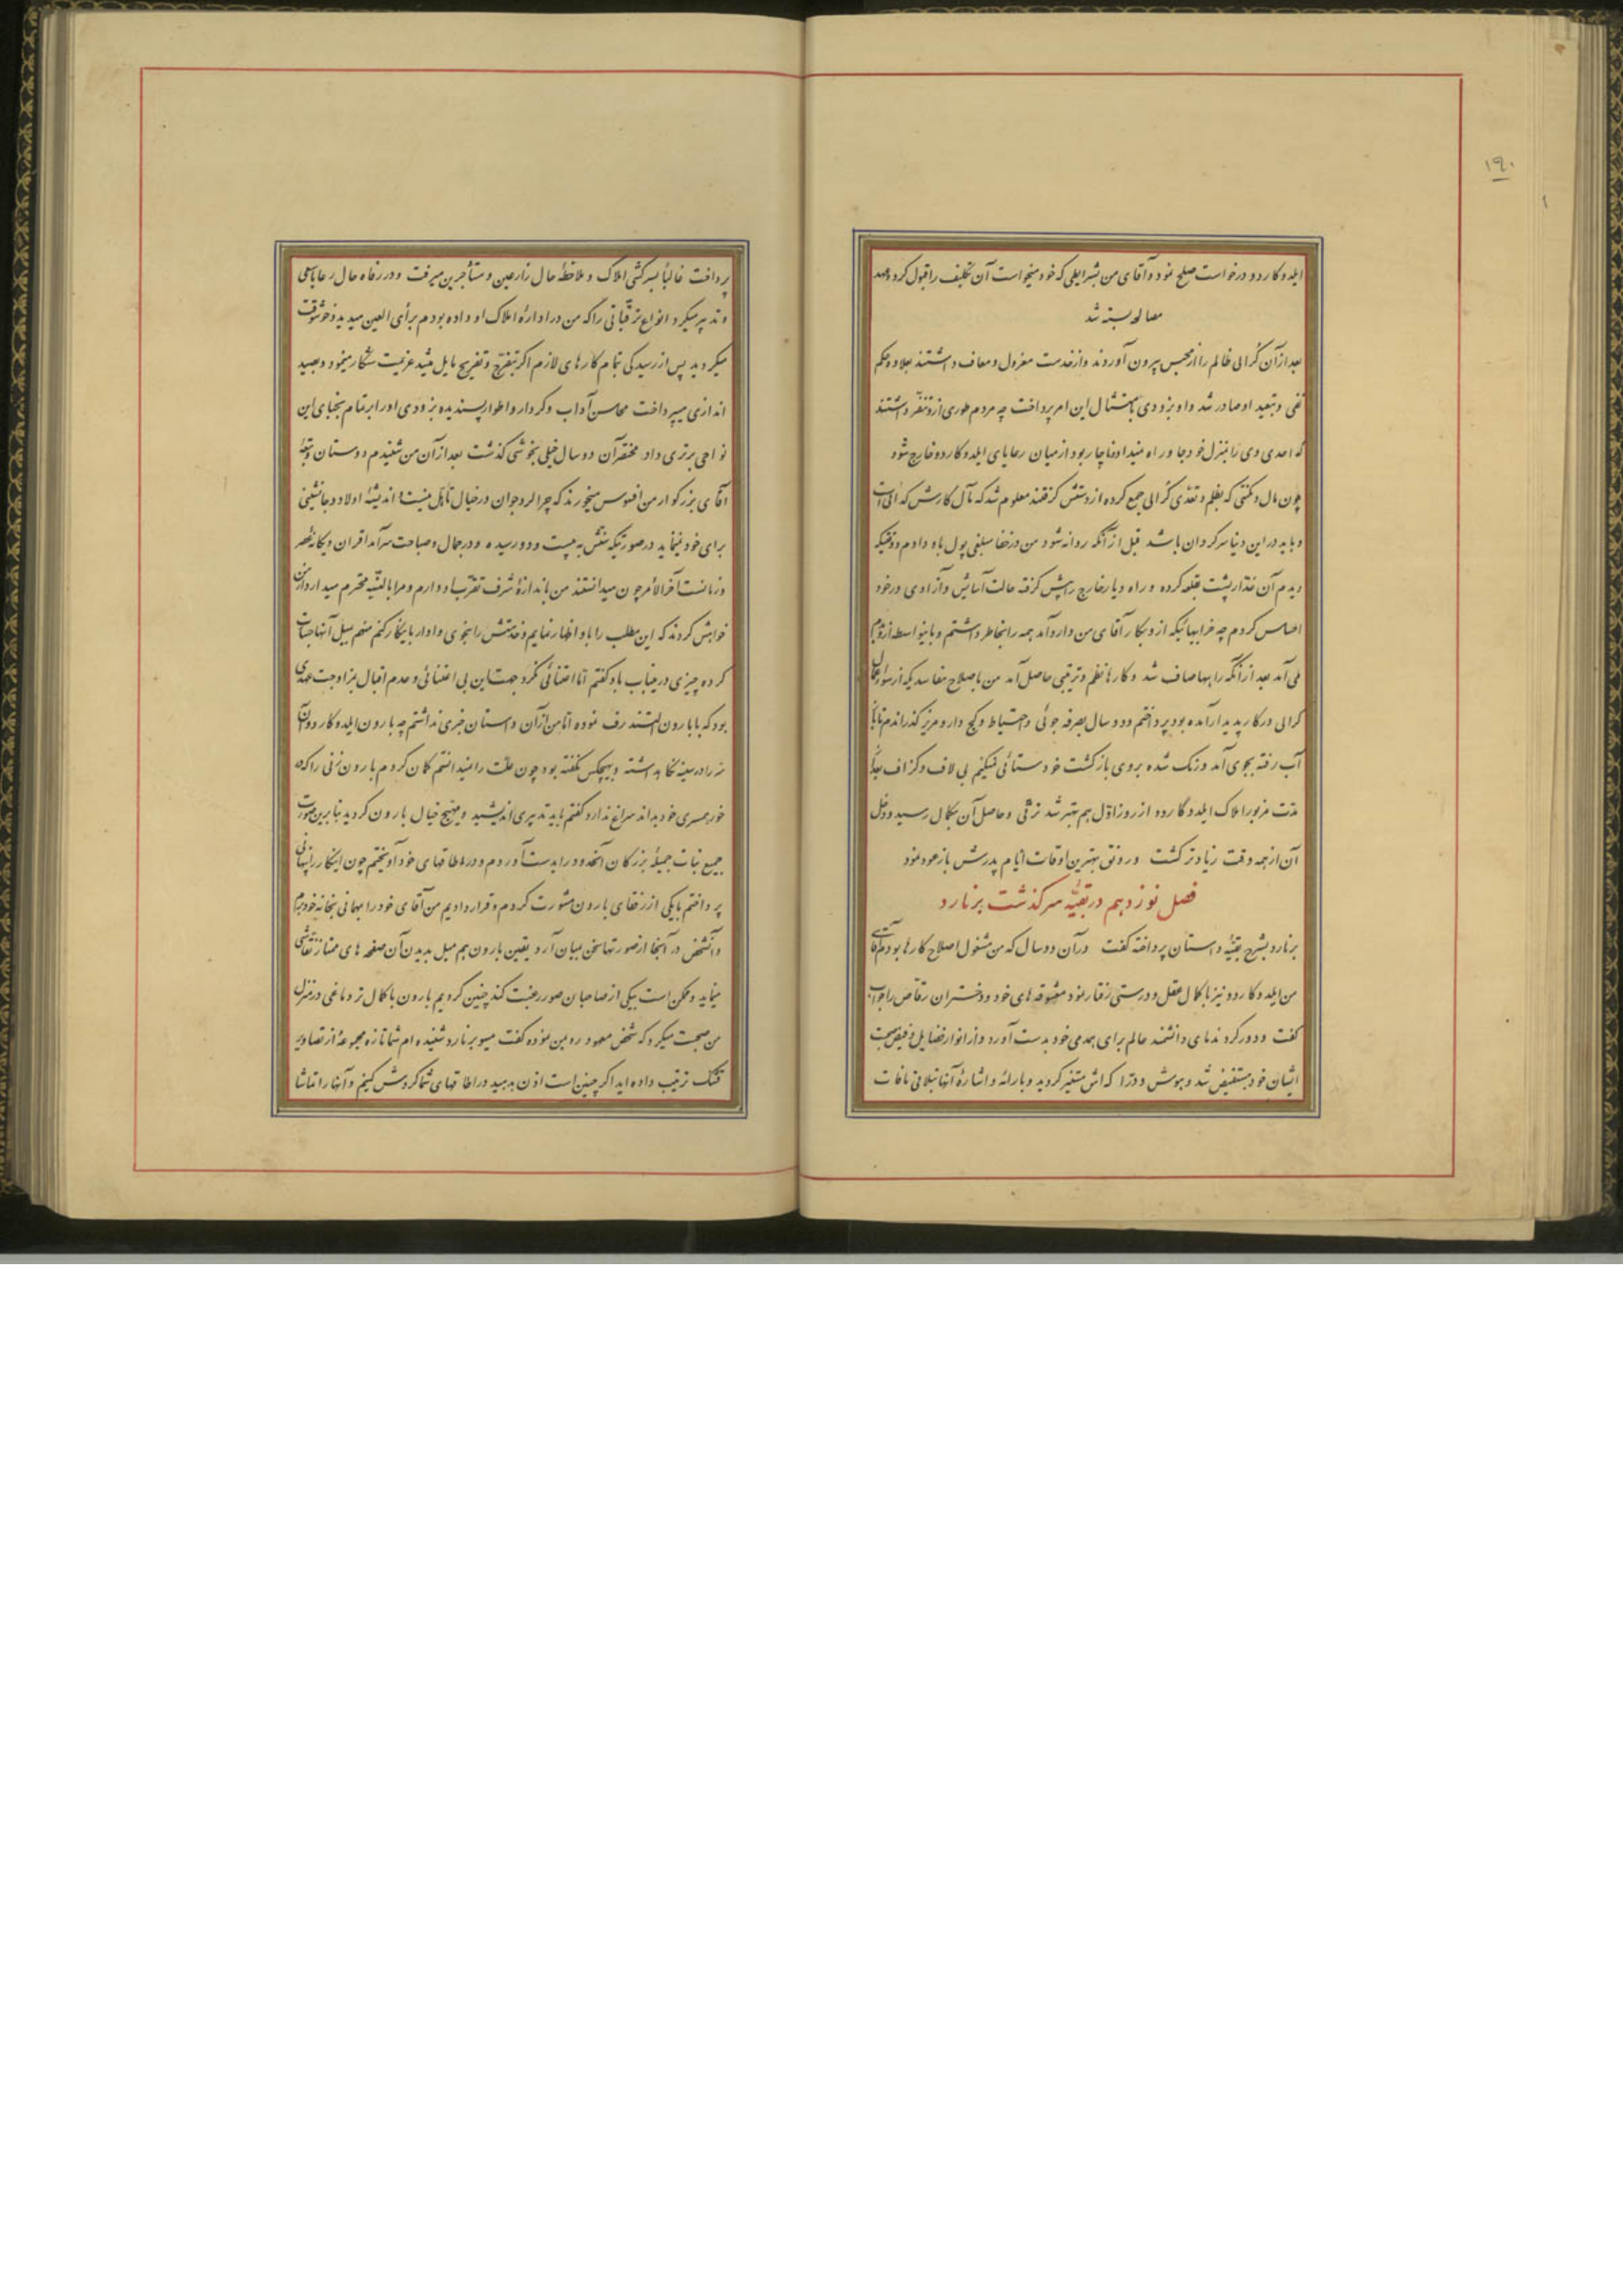 ۱۹۰
ایلدوکاردو درخواست صلح نمود و آقای من بشرایطی که خود میخواست آن تکلیف را قبول کرد و عهد
مصالحه بسته شد
بعد از آن گرالی ظالم را از محبس بیرون آوردند و از خدمت معزول و معاف داشتند بعلاوه حکم
نفی و تبعید او صادر شد و او بزودی بامتثال این امر پرداخت چه مردم طوری ازو تنفر داشتند
که احدی وی را بمنزل خود جا و راه نمیداد ناچار بود از میان رعایای ایلدوکاردو خارج شود
چون مال و مکنتی که بظلم و تعدی گرالی جمع کرده از دستش گرفتند معلوم شد که مآل کارش گدائی است
و باید در این دنیا سرگردان باشد قبل از آنکه روانه شود من در خفا مبلغی پول باو دادم و وقتیکه
دیدم آن غدار پشت بقلعه کرده و راه دیار خارج را پیش گرفته حالت آسایش و آزادی در خود
احساس کردم چه خرابیهائیکه ازو بکار آقای من وارد آمد همه را بخاطر داشتم و باینواسطه ازو بدم
می آمد بعد از آنکه راهها صاف شد و کارها نظم و ترتیبی حاصل آمد من باصلاح مفاسدیکه از سوء اعمال
گرالی در کار پدیدار آمده بود پرداختم و دو سال بصرفه جوئی و احتیاط و کج دار و مریز گذراندم تا باز
آب رفته بجوی آمد و رنگ شده بروی بازگشت خودستائی نمیکنم بی لاف و گزاف بعد از
مدت مزبور املاک ایلدوکاردو از روز اول هم بهتر شد ترقی و حاصل آن بکمال رسید و دخل
آن از همه وقت زیادتر گشت و رونق بهترین اوقات ایام پدرش باز عود نمود
فصل نوزدهم در بقیه سرگذشت برنارد
برنارد بشرح بقیه داستان پرداخته گفت در آن دو سال که من مشغول اصلاح کارها بودم آقای
من ایلدوکاردو نیز با کمال عقل و درستی رفتار نمود معشوقه های خود و دختران رقاص را جواب
گفت و دور کرد ندمای دانشمند عالم برای همدمی خود بدست آورد و از انوار فضایل و فیض صحبت
ایشان خود مستفیض شد و هوش و ذکاء اش متغیر گردید و بارائه و اشاره آنها بتلافی مافات
پرداخت غالباً بسرکشی املاک و ملاحظه حال زارعین و مستأجرین میرفت و در رفاه حال رعایا سعی
و تدبیر میکرد و انواع ترقیاتی را که من در اداره املاک او داده بودم برأی العین میدید و خوشوقت
میگردید پس از رسیدگی تمام کارهای لازم اگر بتفرج و تفریح مایل میشد عزیمت شکار مینمود و بصید
اندازی میپرداخت محاسن آداب و کردار و اطوار پسندیده بزودی او را بر تمام نجبای این
نواحی برتری داد مختصر آن دو سال خیلی بخوشی گذشت بعد از آن من شنیدم دوستان و تبعه
آقای بزرگوار من افسوس میخورند که چرا لرد جوان در خیال تأهل نیست و اندیشه اولاد و جانشینی
برای خود نمینماید در صورتیکه سنش به بیست و دو رسیده و در جمال و صباحت سرآمد اقران و یگانه عصر
و زمانست آخرالامر چون میدانستند من باندازه شرف تقرب او دارم و مرا بالنسبه محترم میدارد از من
خواهش کردند که این مطلب را باو اظهار نمایم و خدمتش را بنحوی وادار باینکار کنم منهم بمیل آنها جسارت
کرده چیزی در این باب باو گفتم اما اعتنائی نکرد جهت این بی اعتنائی و عدم اقبال بمزاوجت عهدی
بود که با بارون المتندرف نموده اما من از آن داستان خبری نداشتم چه بارون ایلدوکاردو آن
سر را در سینه نگاهداشته و بهیچکس نگفته بود چون علت را نمیدانستم گمان کردم بارون زنی را که
خور همسری خود بداند سراغ ندارد گفتم باید تدبیری اندیشید و مهیج خیال بارون گردید بنابرین صورت
جمیع بنات جمیله بزرگان آنحدود را بدست آوردم و در اطاقهای خود آویختم چون اینکار را بپایان
پرداختم با یکی از رفقای بارون مشورت کردم و قرار دادیم من آقای خود را بمهمانی بخانه خود برم
و آنشخص در آنجا از صورتها سخن بمیان آرد یقین بارون هم میل بدیدن آن صفحه های ممتاز نقاشی
مینماید و ممکن است بیکی از صاحبان صور رغبت کند چنین کردیم بارون با کمال تردماغی در منزل
من صحبت میکرد که شخص معهود رو بمن نموده گفت مسیو برنارد شنیده ام شما تازه مجموعه از تصاویر
قشنگ ترتیب داده اید اگر چنین است اذن بدهید در اطاقهای شما گردش کنیم و آنها را تماشا